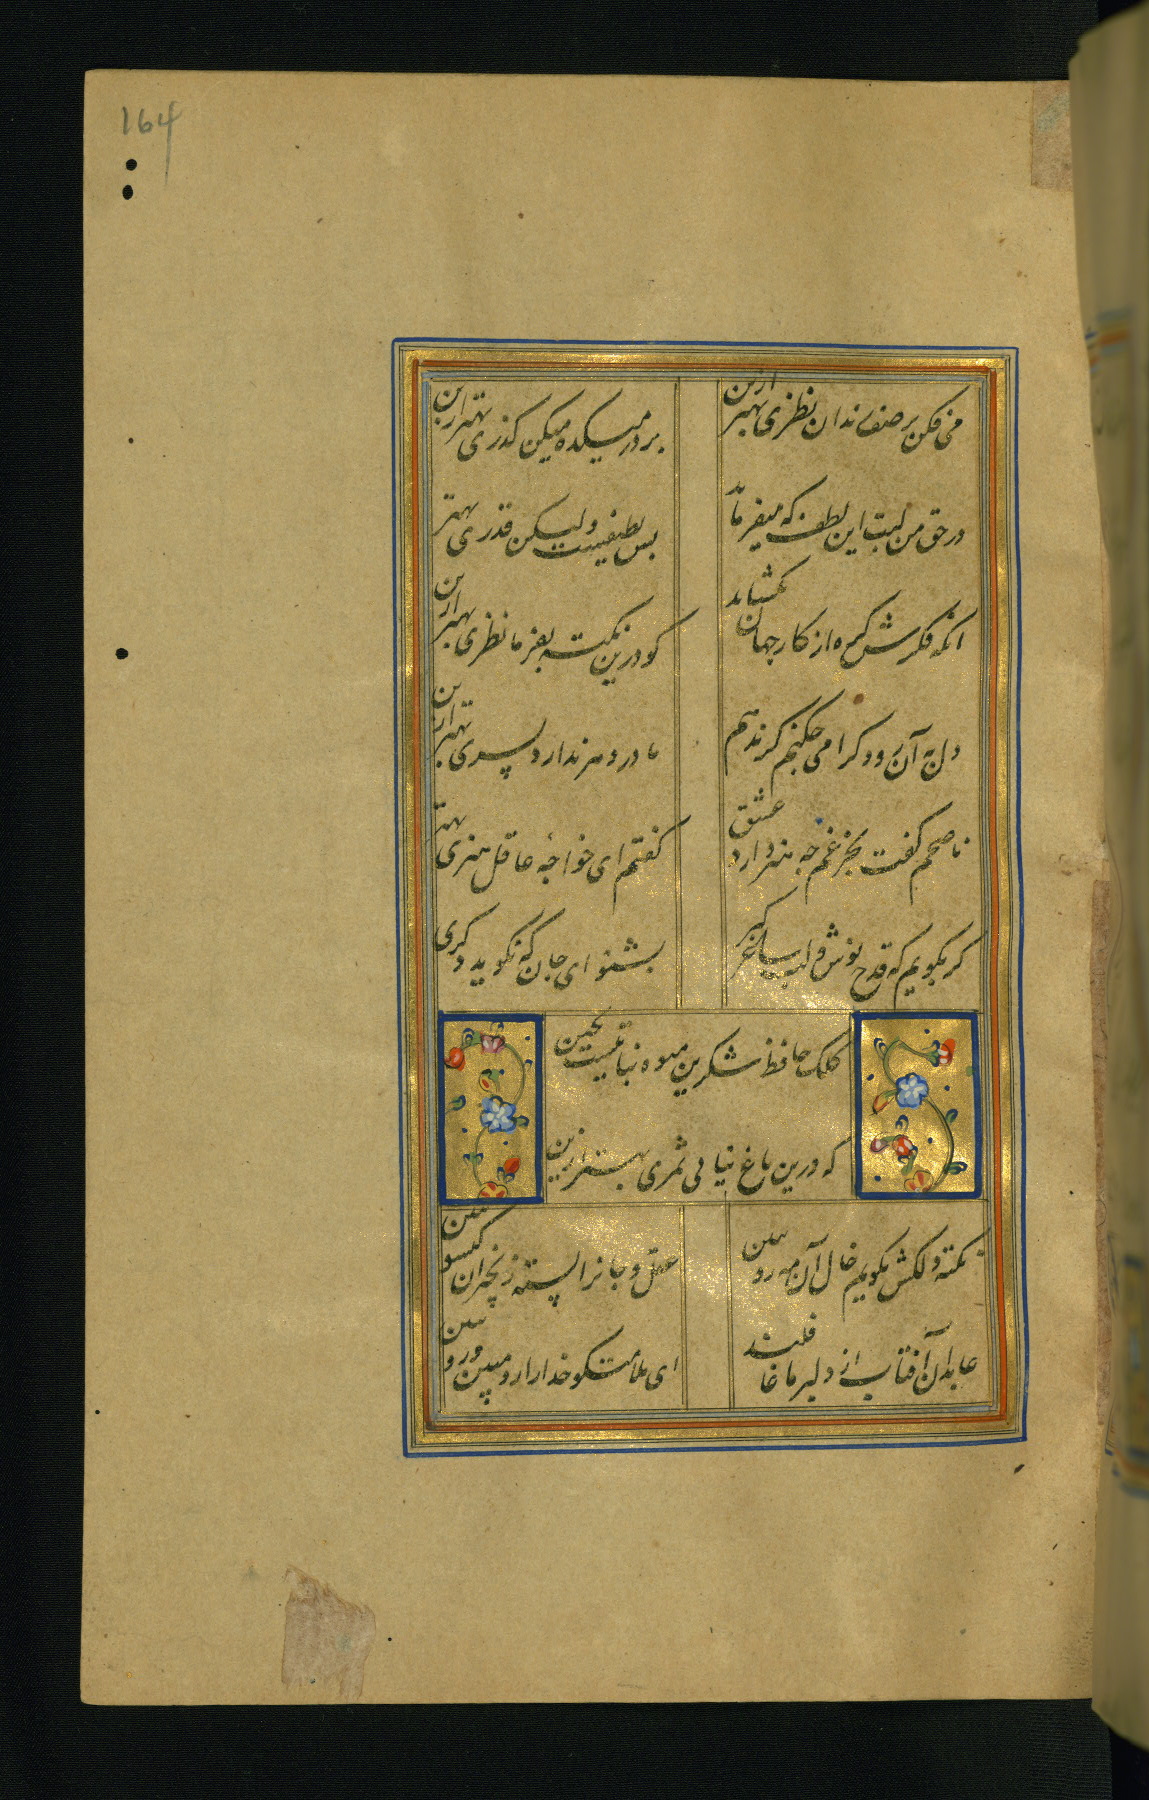 164
می فکن بر صف رندان نظری بهتر ازین
بر در میکده میکن گذری بهتر ازین
در حق من لبت این لطف که میفرماید
بس لطیفست ولیکن قدری بهتر
انکه فکرش گره از کار جهان بگشاید
کو درین نکته بفرما نظری بهتر ازین
دل به آن رود کرامی چکنم گر ندهم
مادر دهر ندارد پسری بهتر ازین
ناصحم گفت بجز غم چه هنر دارد عشق
گفتم ای خواجه عاقل هنری بهتر
گر بگویم که قدح نوش و لب ساغر گیر
بشنو ای جان که نگوید دگری
کلک حافظ شکرین میوه نباتیست بچین
که درین باغ نیابی ثمری بهتر ازین
نکته دلکش بگویم خال آن مه رو ببین
عقل و جانرا بسته زنجیر آن گیسو ببین
عابدان آفتاب از دلبر ما غافلند
ای ملامتگو خدارا رو مبین و رو ببین